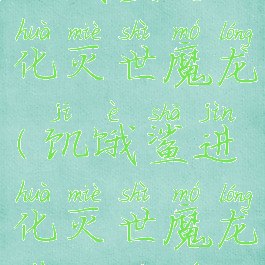 huà miè shì mó lóng
化灭世魔龙
jī è shā jìn
(饥饿鲨进
huà miè shì mó lóng
化灭世魔龙